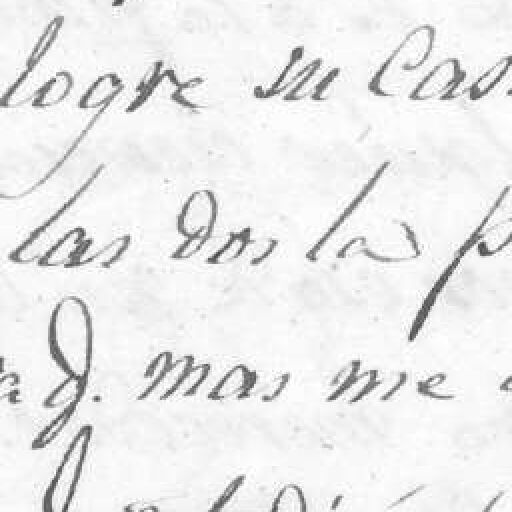 logre su Cas
las dos la p
a J. mas me